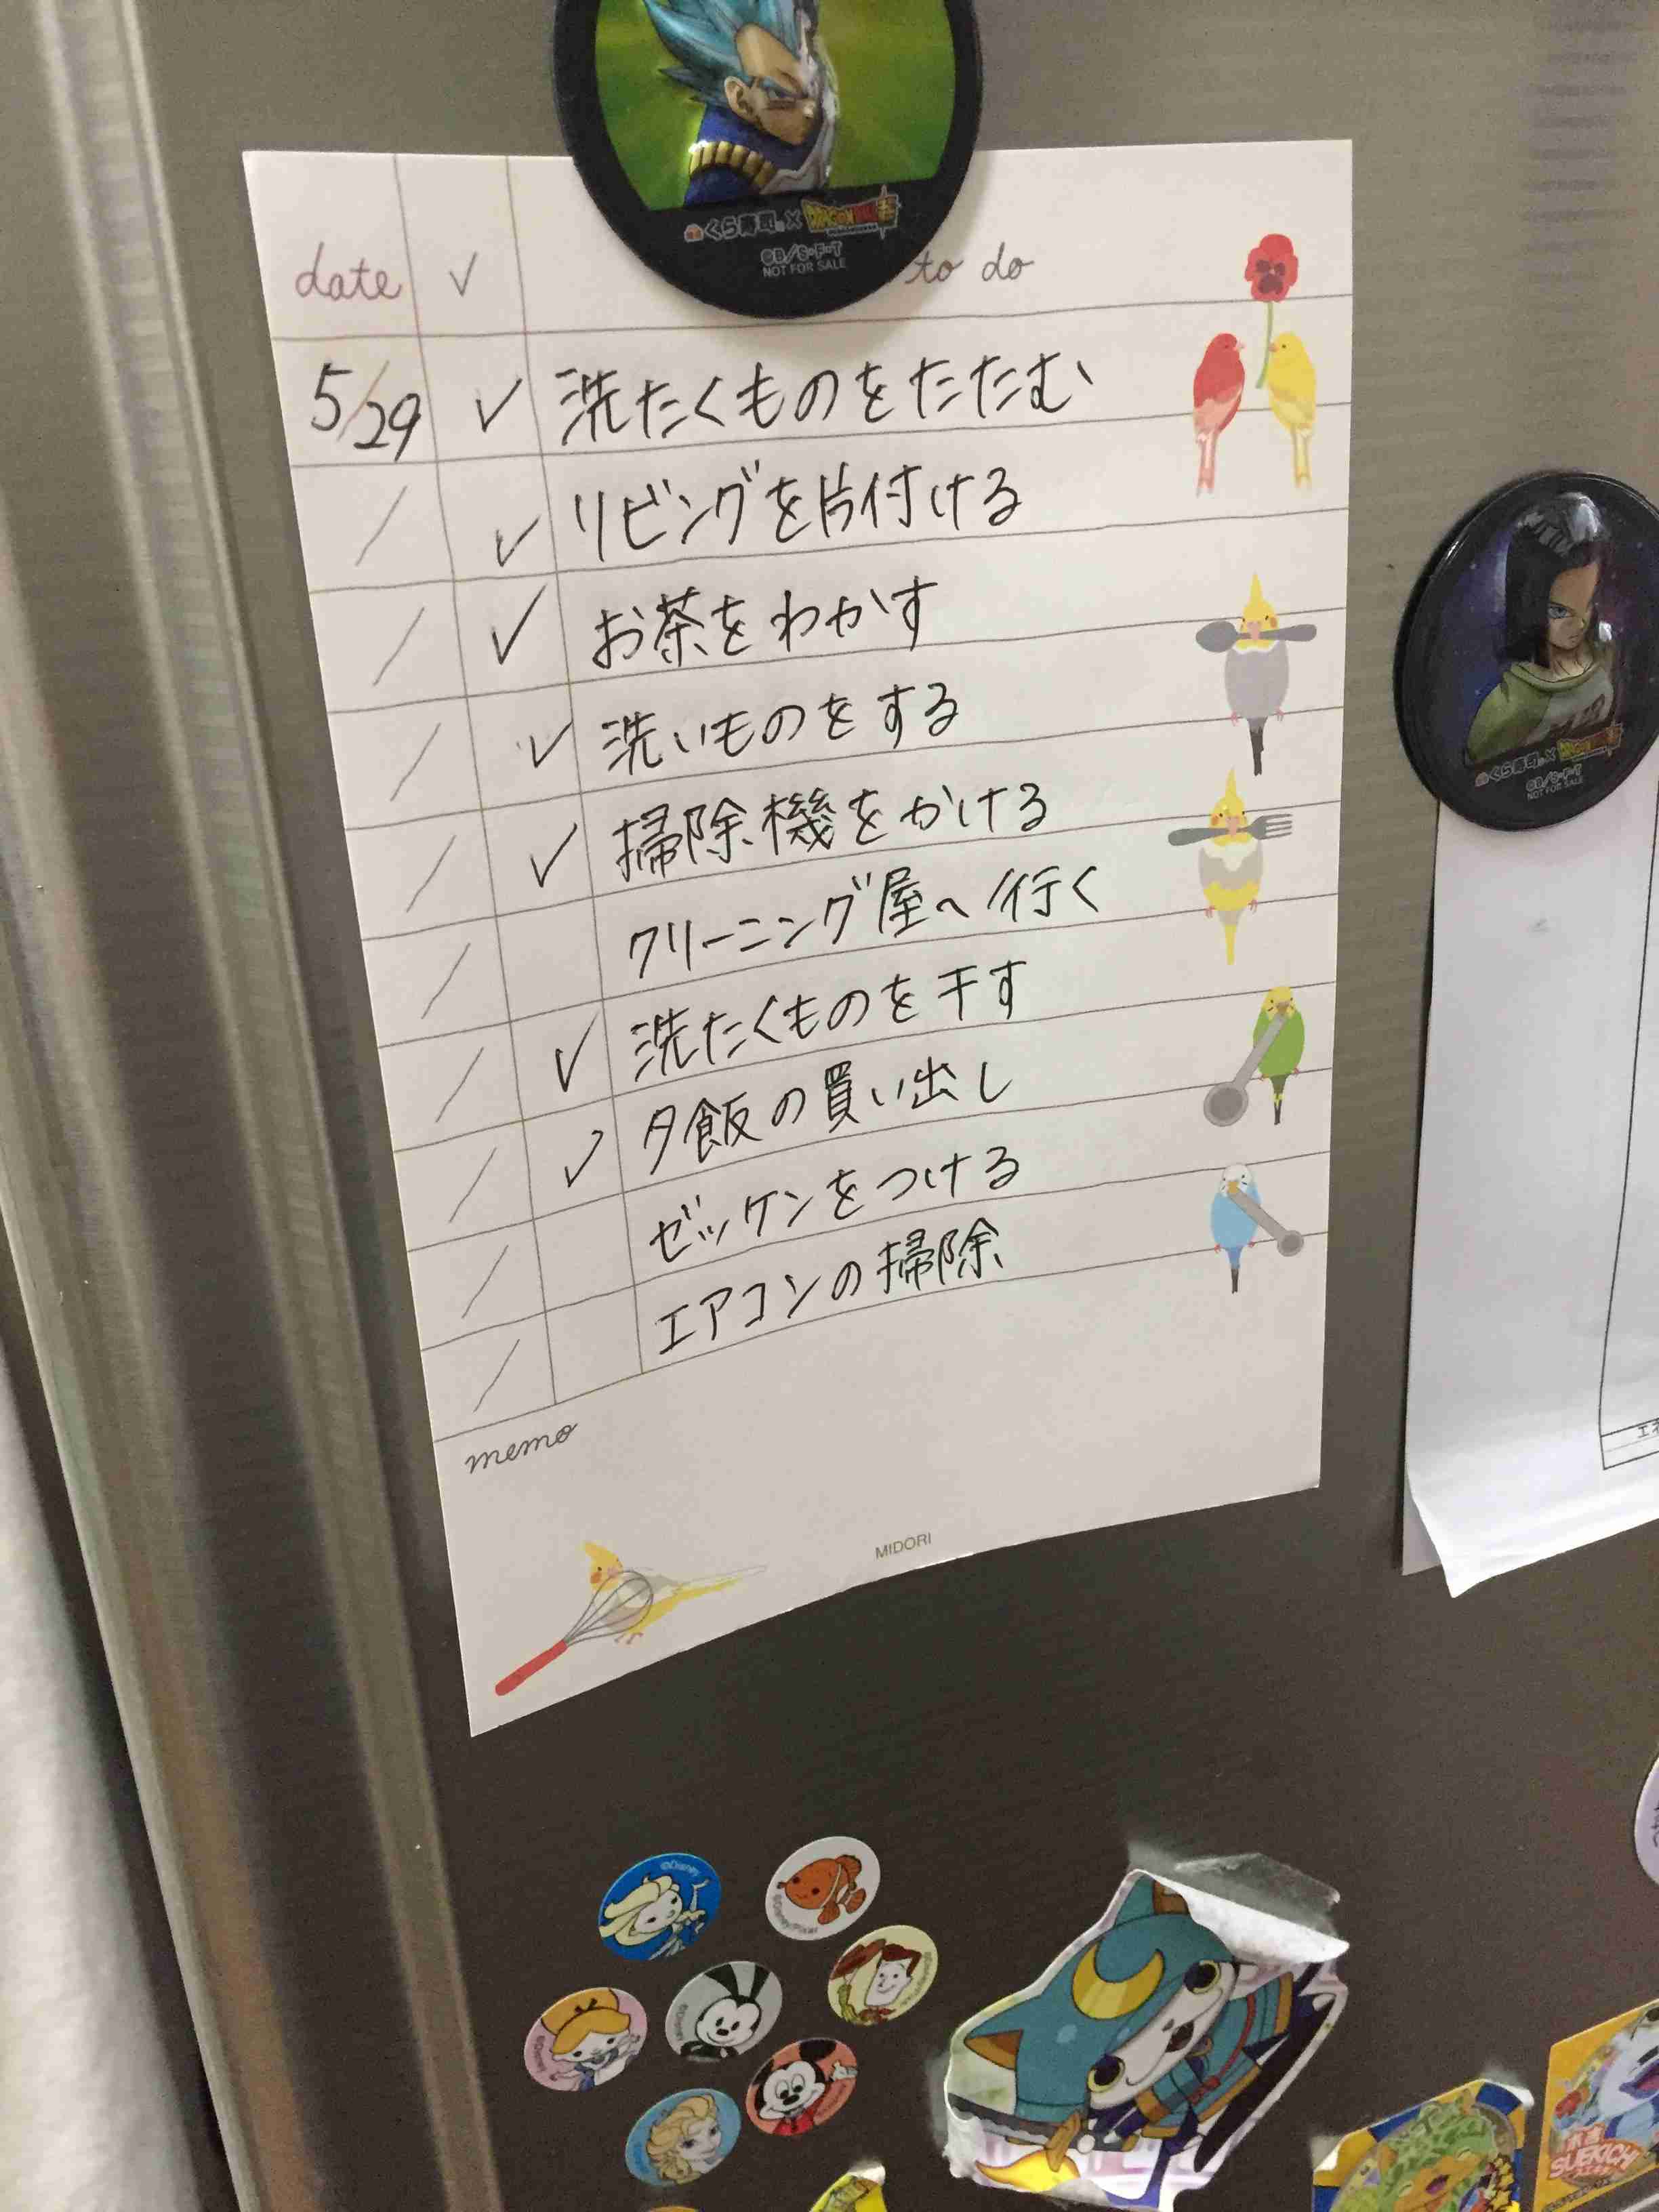 くら寿司。× DRAGONBALL超
©B/S・F・T
NOT FOR SALE
date ✓ to do
5/29 ✓ 洗たくものをたたむ
/ ✓ リビングを片付ける
/ ✓ お茶をわかす
/ ✓ 洗いものをする
/ ✓ 掃除機をかける
/ クリーニング屋へ行く
/ ✓ 洗たくものを干す
/ ✓ 夕飯の買い出し
/ ゼッケンをつける
/ エアコンの掃除
memo
MIDORI
くら寿司。×
©B/S・F・T
NOT FOR SALE
©Disney
©Disney/Pixar
SUEKICHI